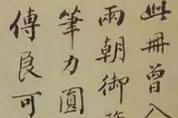 此冊曾入
兩朝御
筆力圓
傳良可